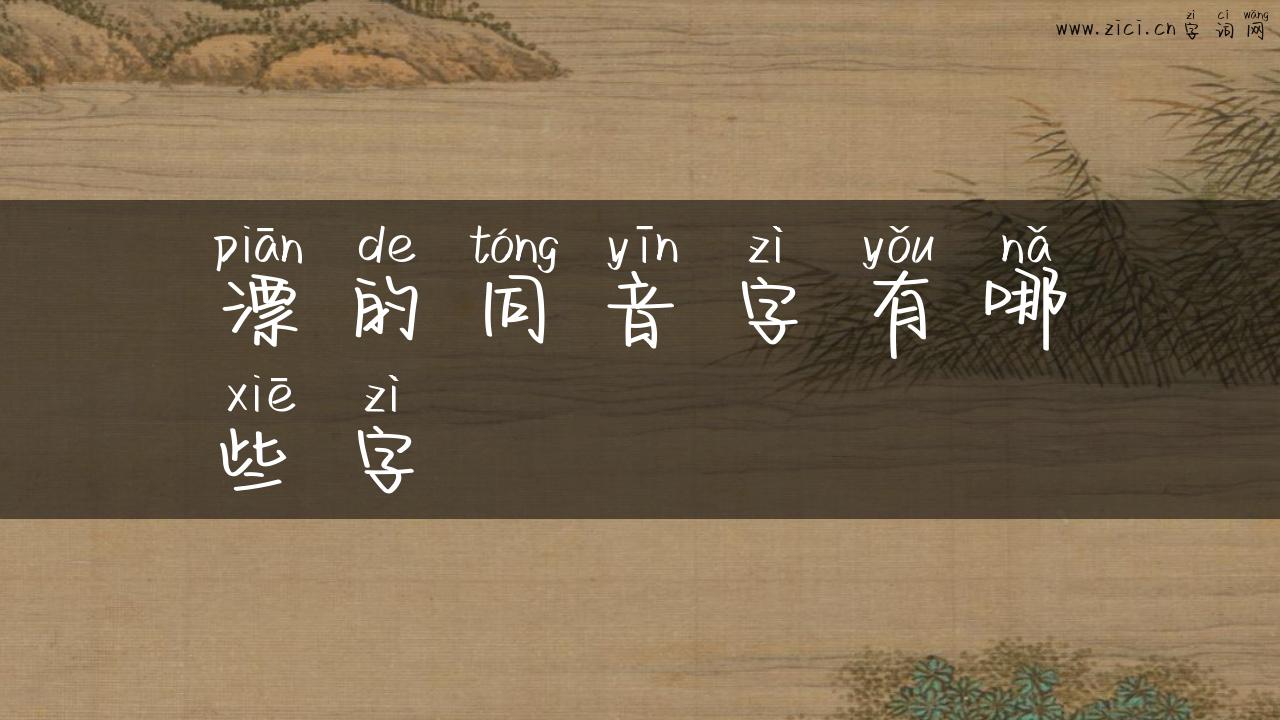 zì cí wǎng
www.zici.cn 字词网
piān de tóng yīn zì yǒu nǎ
漂的同音字有哪
xiē zì
些字